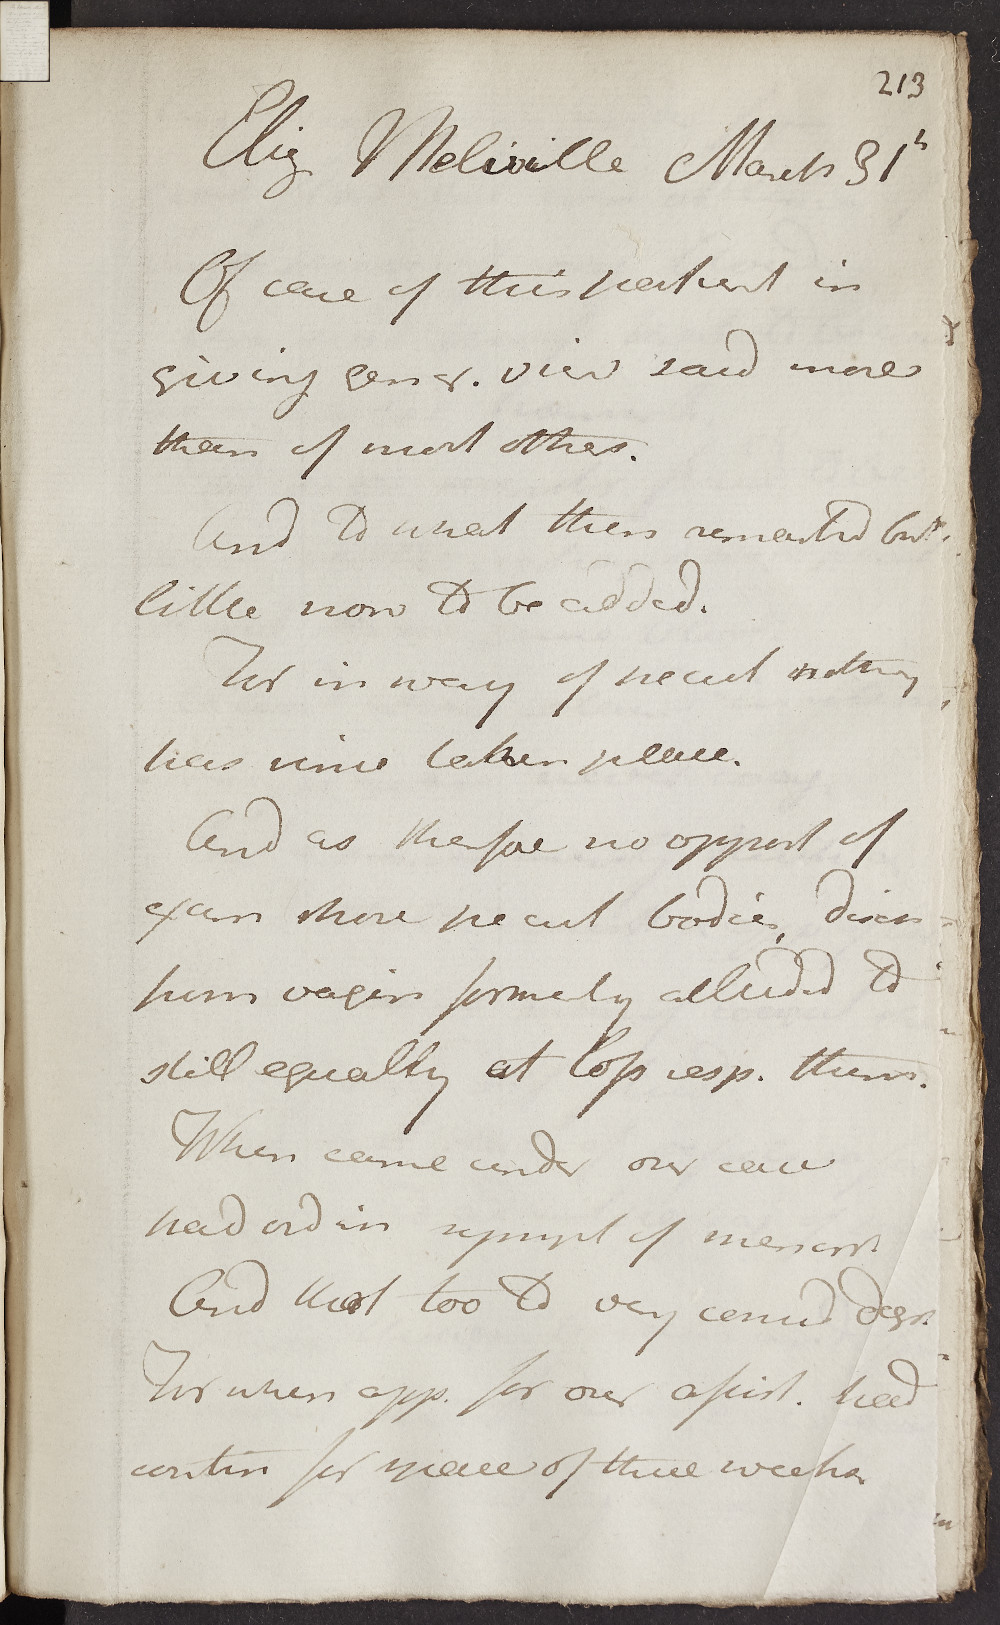 213
Eliz Melville March 31st
Of case of this patient in
giving gener. view said more
than of most others.
And to what then remarked but
little now to be added.
For in way of pecul nothing
has since taken place.
And as therfore no opport of
exam those pecul bodies, disch
from vagin formerly alluded to
still equally at loss resp. them.
When came under our care
had ord in sympt of menorr
And that too to very consid degr
For when app. for our assist. had
contin for space of three weeks